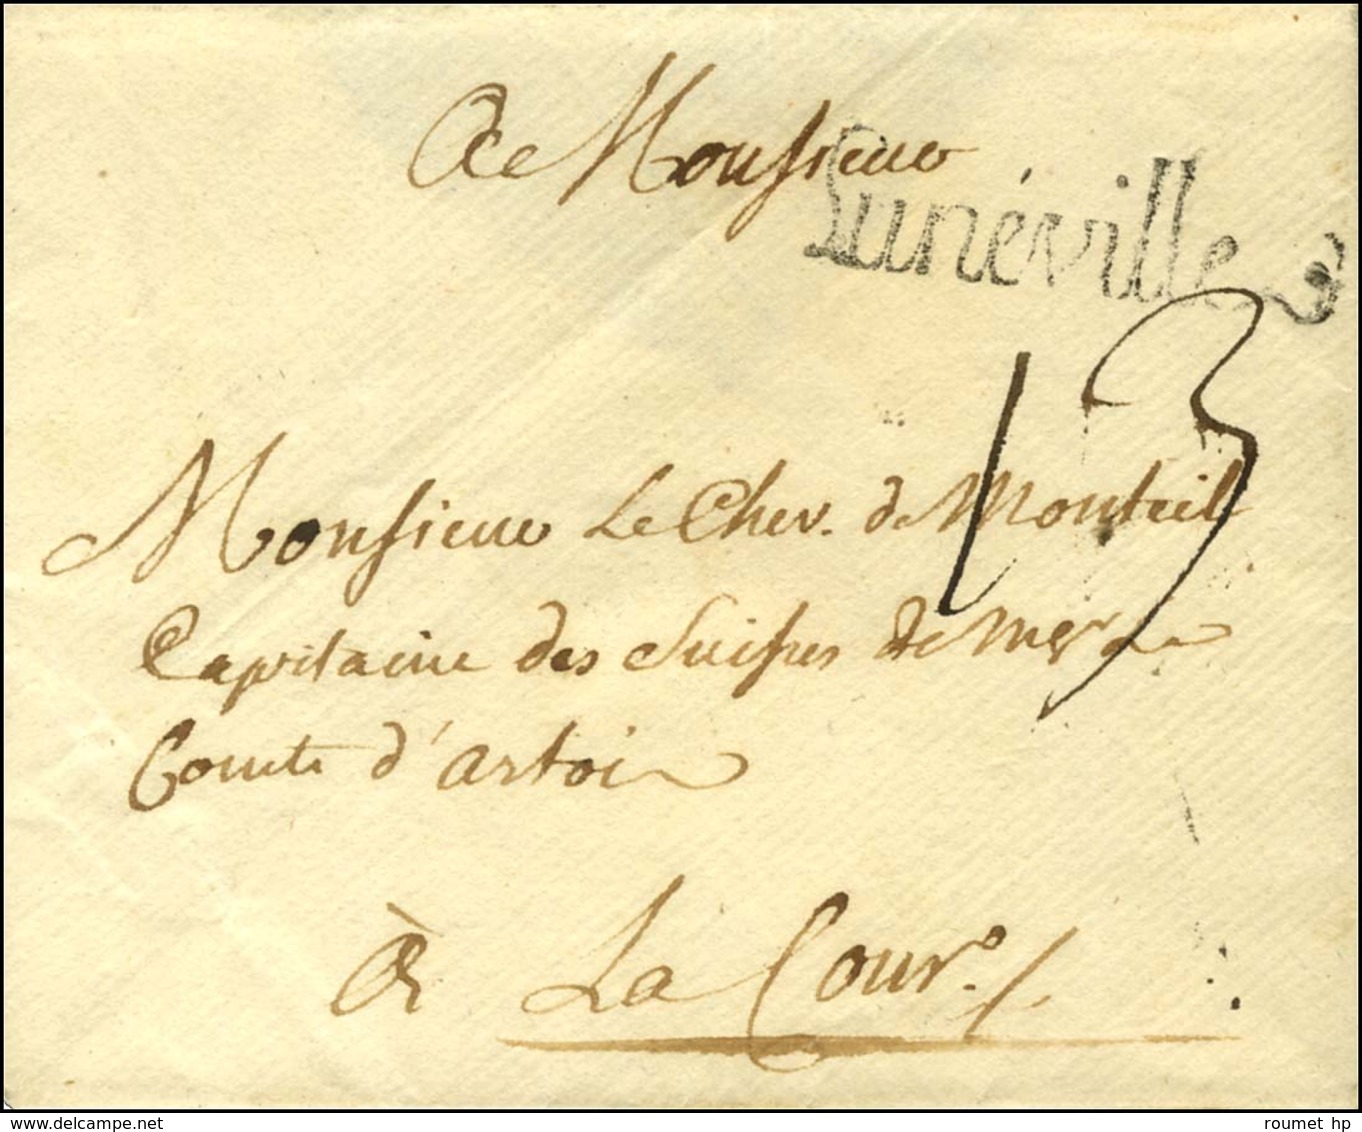 A Monsieur
Lunéville
13
Monsieur Le Chev. de Monteil
Capitaine des Suisses de Mgr Le
Comte d'artois
à La Cour.
delcampe.net
roumet hp